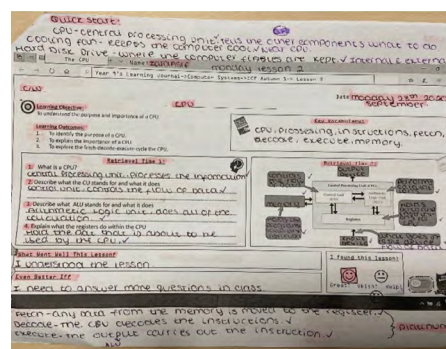 Quick Start:
CPU-central processing unit, tells the other components what to do
Cooling fan - keeps the computer cool / near CPU
Hard Disk Drive - where the computer files are kept ✓ internal & external
The CPU Name:
monday lesson 2
Year 9's Learning Journal->Computer Systems->HT Autumn 1-> Lesson 3
C/W
CPU
Date monday 28th
September
Learning Objective:
To understand the purpose and importance of a CPU.
Learning Outcomes:
1. To identify the purpose of a CPU.
2. To explain the importance of a CPU.
3. To explore the fetch-decode-execute cycle the CPU.
Key Vocabulary
CPU, processing, instructions, fetch,
decode, execute, memory.
Retrieval Time 1:
1. What is a CPU?
central Processing unit, processes the information ✓
2. Describe what the CU stands for and what it does
control unit, controls the flow of data ✓
3. Describe what ALU stands for and what it does
Arithmetic Logic unit, does all of the
calculation ✓
4. Explain what the registers do within the CPU
Hold the data that is about to be
used by the CPU. ✓
Retrieval Time 2:
Central Processing Unit (CPU)
Registers
What Went Well This Lesson?
I understood the lesson
Even Better If?
I need to answer more questions in class
I found this lesson:
Great! Okish! Help!
Fetch - any data from the memory is moved to the register. ✓
Decode - the CPU decodes the instructions. ✓
execute - the output carries out the instruction. ✓